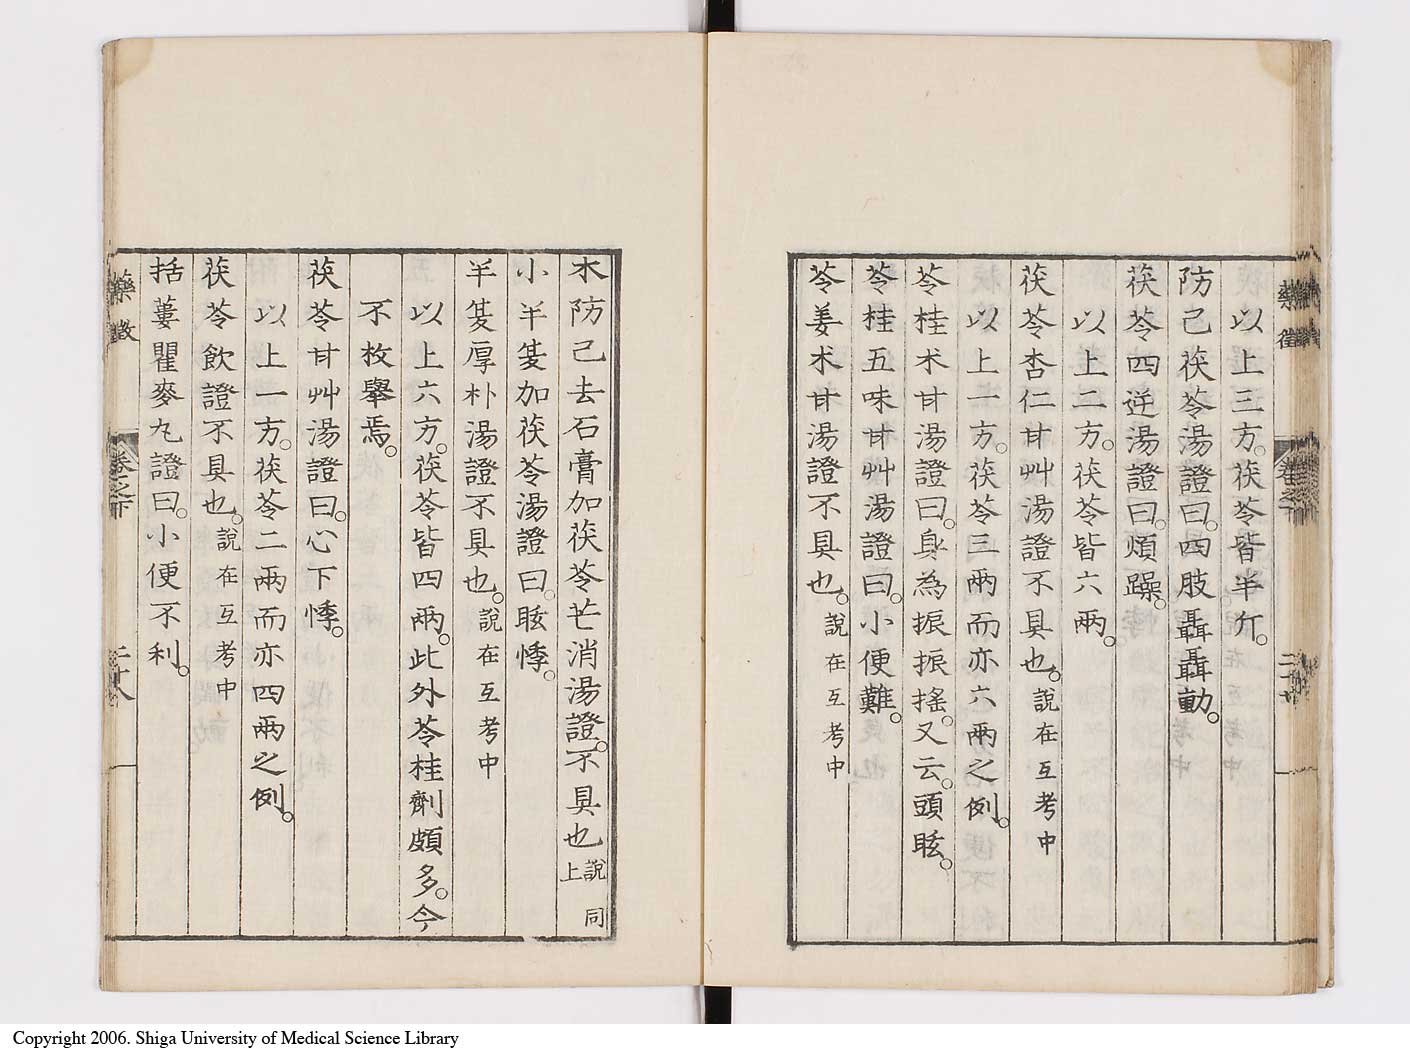 以上三方。茯苓皆半斤。
防己茯苓湯證曰。四肢聶聶動。
茯苓四逆湯證曰。煩躁。
以上二方。茯苓皆六兩。
茯苓杏仁甘艸湯證不具也。說在互考中
以上一方。茯苓三兩而亦六兩之例。
苓桂朮甘湯證曰。身為振振搖。又云。頭眩。
苓桂五味甘艸湯證曰。小便難。
苓姜朮甘湯證不具也。說在互考中
木防己去石膏加茯苓芒消湯證。不具也說同上
小半夏加茯苓湯證曰。眩悸。
半夏厚朴湯證不具也。說在互考中
以上六方。茯苓皆四兩。此外苓桂劑頗多。今
不枚舉焉。
茯苓甘艸湯證曰。心下悸。
以上一方。茯苓二兩而亦四兩之例。
茯苓飲證不具也。說在互考中
括蔞瞿麥丸證曰。小便不利。
藥徵 卷之下 二十八
Copyright 2006. Shiga University of Medical Science Library